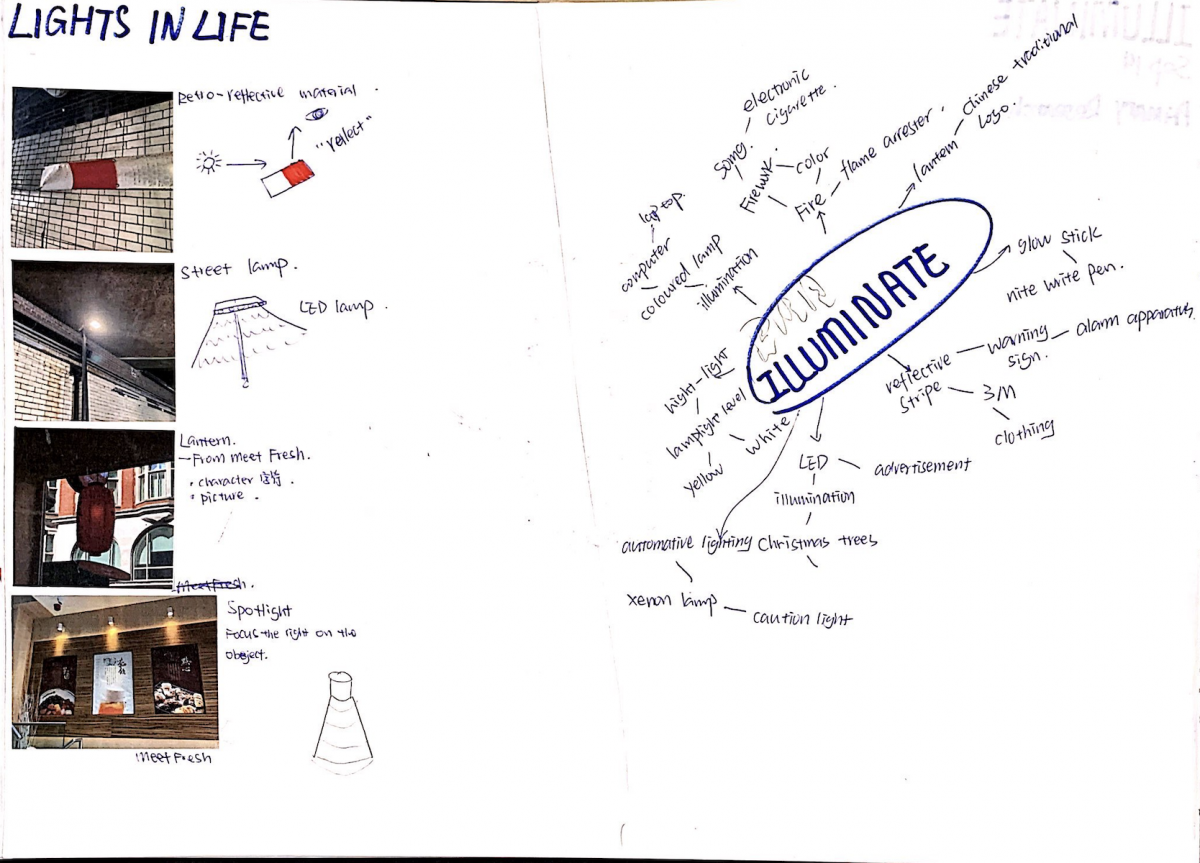 LIGHTS IN LIFE
Retro-reflective material.
"reflect"
Street lamp.
LED lamp.
Lantern.
- From meet Fresh.
• character
• picture.
MeetFresh.
Spotlight
Focus the light on the
object.
MeetFresh
ILLUMINATE
electronic
cigarette.
Song.
Firework
color
Fire
flame arrester.
lantern
Chinese traditional
Logo.
laptop.
computer
coloured lamp
illumination
glow stick
nite write pen.
reflective
stripe
warning
sign.
alarm apparatus
3M
clothing
Night-light
lamplight level
white
yellow
LED
advertisement
illumination
Christmas trees
automative lighting
xenon lamp
caution light
ILLUMINATE